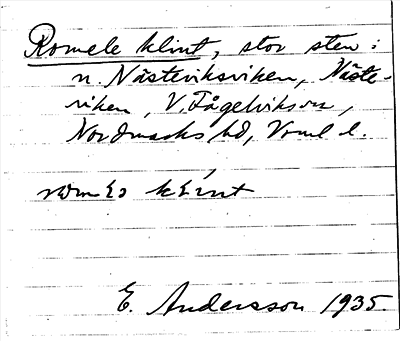 Romele klint, stor sten i
n. Nästeviksviken, Näste-
viken, V. Fågelviks sn,
Nordmarks hd, Vrml l.
klint
E. Andersson 1935.